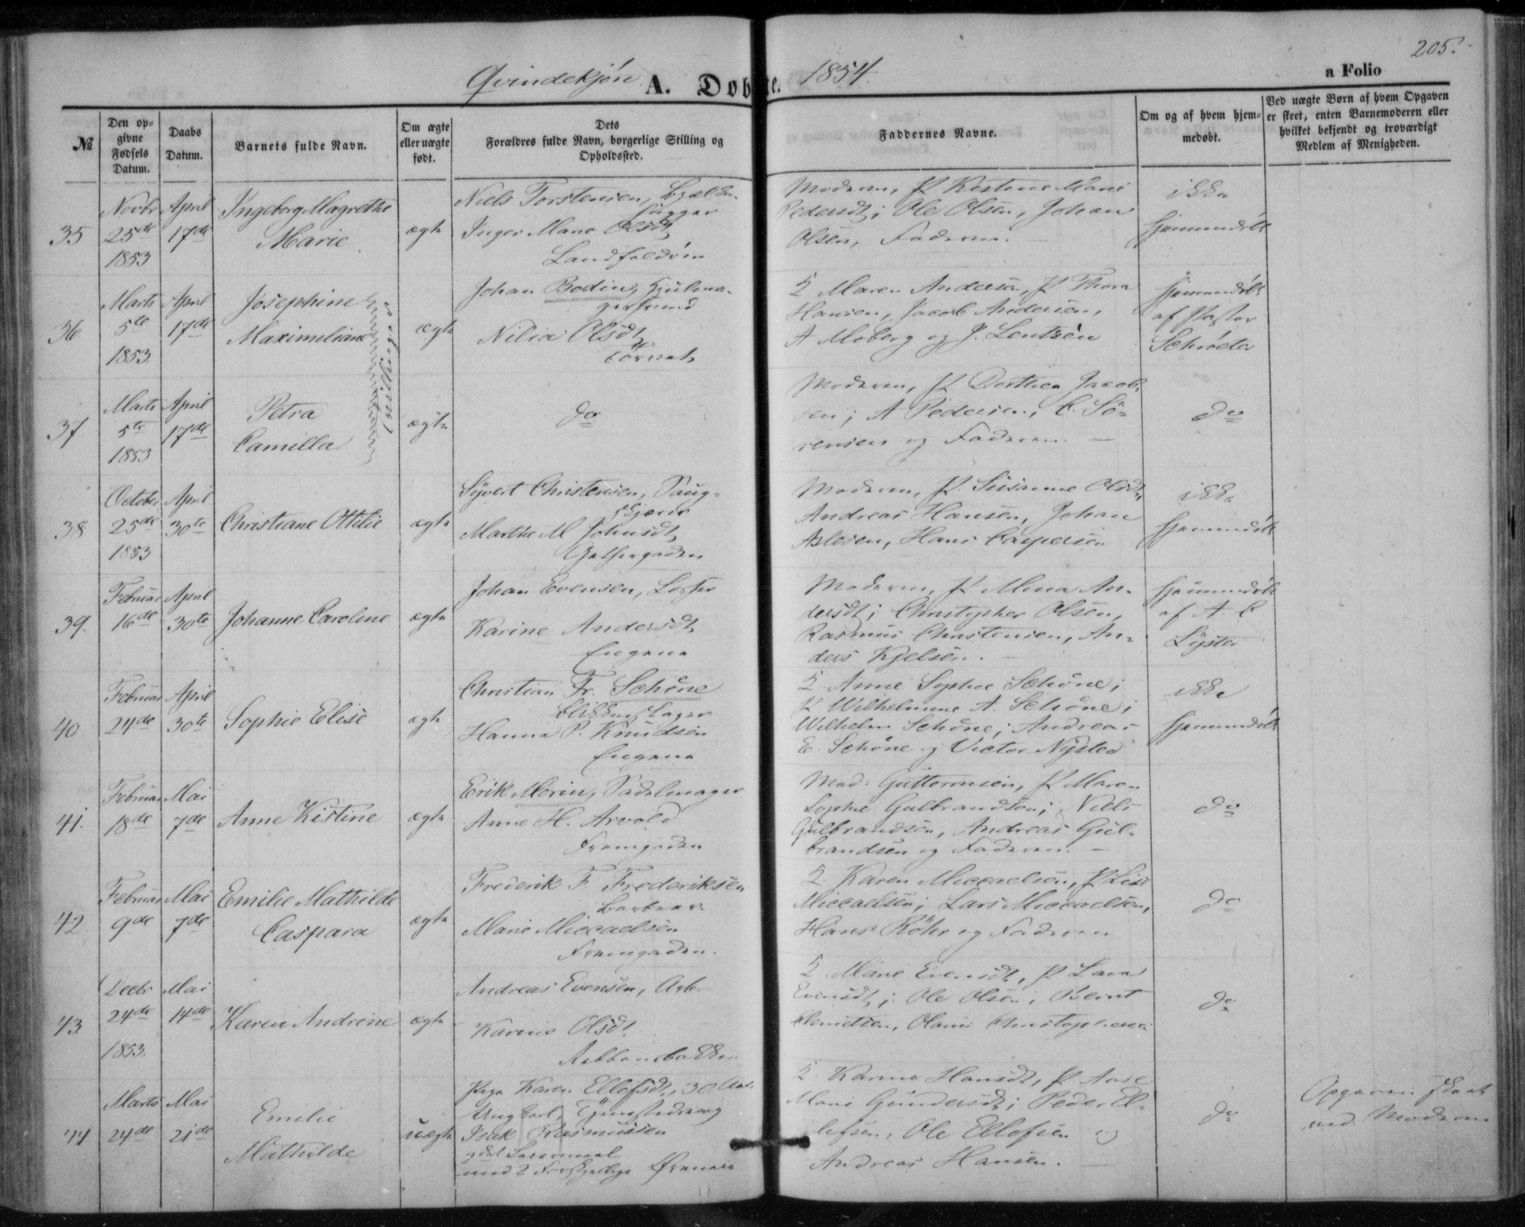 205.
Qvindekjön A. Døbte. 1854.
a Folio
№
Den opgivne Fødsels Datum.
Daabs Datum.
Barnets fulde Navn.
Om ægte eller uægte født.
Dets Forældres fulde Navn, borgerlige Stilling og Opholdssted.
Faddernes Navne.
Om og af hvem hjemmedøbt.
Ved uægte Børn af hvem Opgaven er skeet, enten Barnemoderen eller hvilket bekjendt og troværdigt Medlem af Menigheden.
35
Novbr 25de 1853
April 17de
Ingeborg Magrethe
Marie
ægte
Niels Torstensen,
Inger Marie Olsdt
Landfaldöen
Moderen, P Kirstine Marie
Pedersdt; Ole Olsen, Johan
Olsen, Faderen.
ikke
hjemmedöbt
36
Marts 5te 1853
April 17de
Josephine
Maximiliane
ægte
Johan Bodin,
Nilia Olsdt
Törnet
Maren Andersen, P Thora
Hansen, Jacob Andersen,
A Moberg og J. Lentzen
hjemmedöbt
af Pastor
Schröeter
37
Marts 5te 1853
April 17de
Petra
Camilla
ægte
do
Moderen, P Dorthea Jacob-
sen; A Pedersen, C. Sö-
rensen og Faderen. —
do
38
October 25de 1853
April 30te
Christiane Ottilie
ægte
Syvert Christensen, Saug-
skjærer
Marthe M Johnsdt
Moderen, P Susanne Olsdt,
Andreas Hansen, Johan
Aslesen, Hans Caspersen
ikke
hjemmedöbt
39.
Februar 16de
April 30te
Johanne Caroline
ægte
Johan Evensen,
Karine Andersdt
Engene
Moderen, P Mina An-
dersdt; Christopher Olsen,
Rasmus Christensen, An-
ders Kjelsen. —
hjemmedöbt
af A. C
Lyster
40
Februar 24de
April 30te
Sophie Elise
ægte
Christian Fr. Schöne
Blikkenslager
Hanna P. Knudsen
Engene
Anne Sophie Schöne;
P Wilhelmine A. Schöne;
Wilhelm Schöne; Andreas
E. Schöne og Victor Nysted
ikke
hjemmedöbt
41.
Februar 18de
Mai 7de
Anne Kistine
ægte
Erik Morin, Sadelmager
Anne H. Arvold
Strömgaden
Mad: Guttormsen, P Maren
Sophie Gulbrandsen; Nils
Gulbrandsen, Andreas Gul-
brandsen og Faderen. —
do
42.
Februar 9de
Mai 7de
Emilie Mathilde
Caspara
ægte
Frederik F. Frederiksen
Marie Miccaelsen
Karen Miccaelsen, P Lise
Miccaelsen; Lars Miccaelsen,
Hans Röhr og Faderen
do
43.
Decbr 24de 1853.
Mai 14de
Karen Andrine
ægte
Andreas Evensen, Arb.
Karine Olsdt.
Marie Evensdt, P Lava
Evensdt; Ole Olsen, Bernt
do
44
Marts 24de
Mai 21de
Emilie
Mathilde
uægte
Pige Karen Ellefsdt, 30 Aar.
Ungkarl,
Isak Rasmussen
med 2 Forskjellige
Karine Hansdt, P Anne
Marie Gundersdt; Peder El-
lefsen, Ole Ellefsen og
Andreas Hansen. —
do
Opgaven skeet
ved Moderen